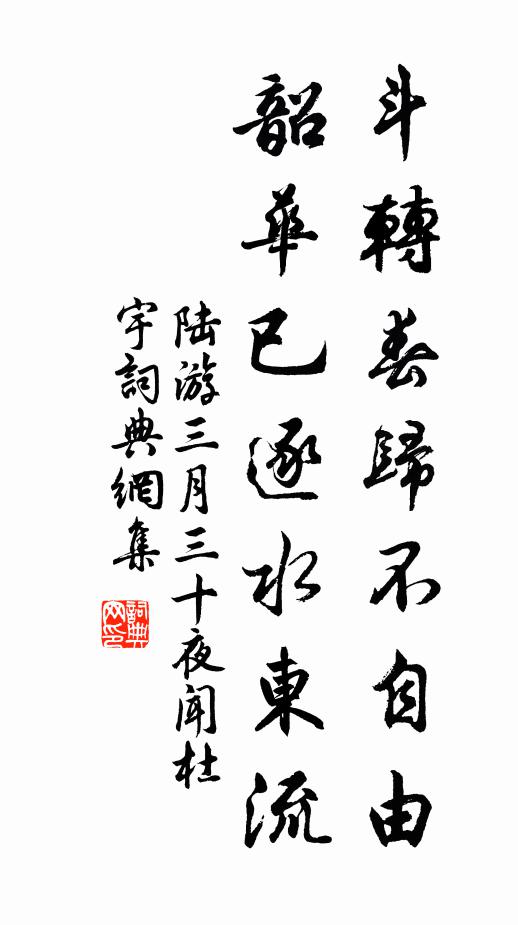 斗轉春歸不自由
韶華已逐水東流
陸游三月三十夜聞杜
宇詞典網集
詞典网印